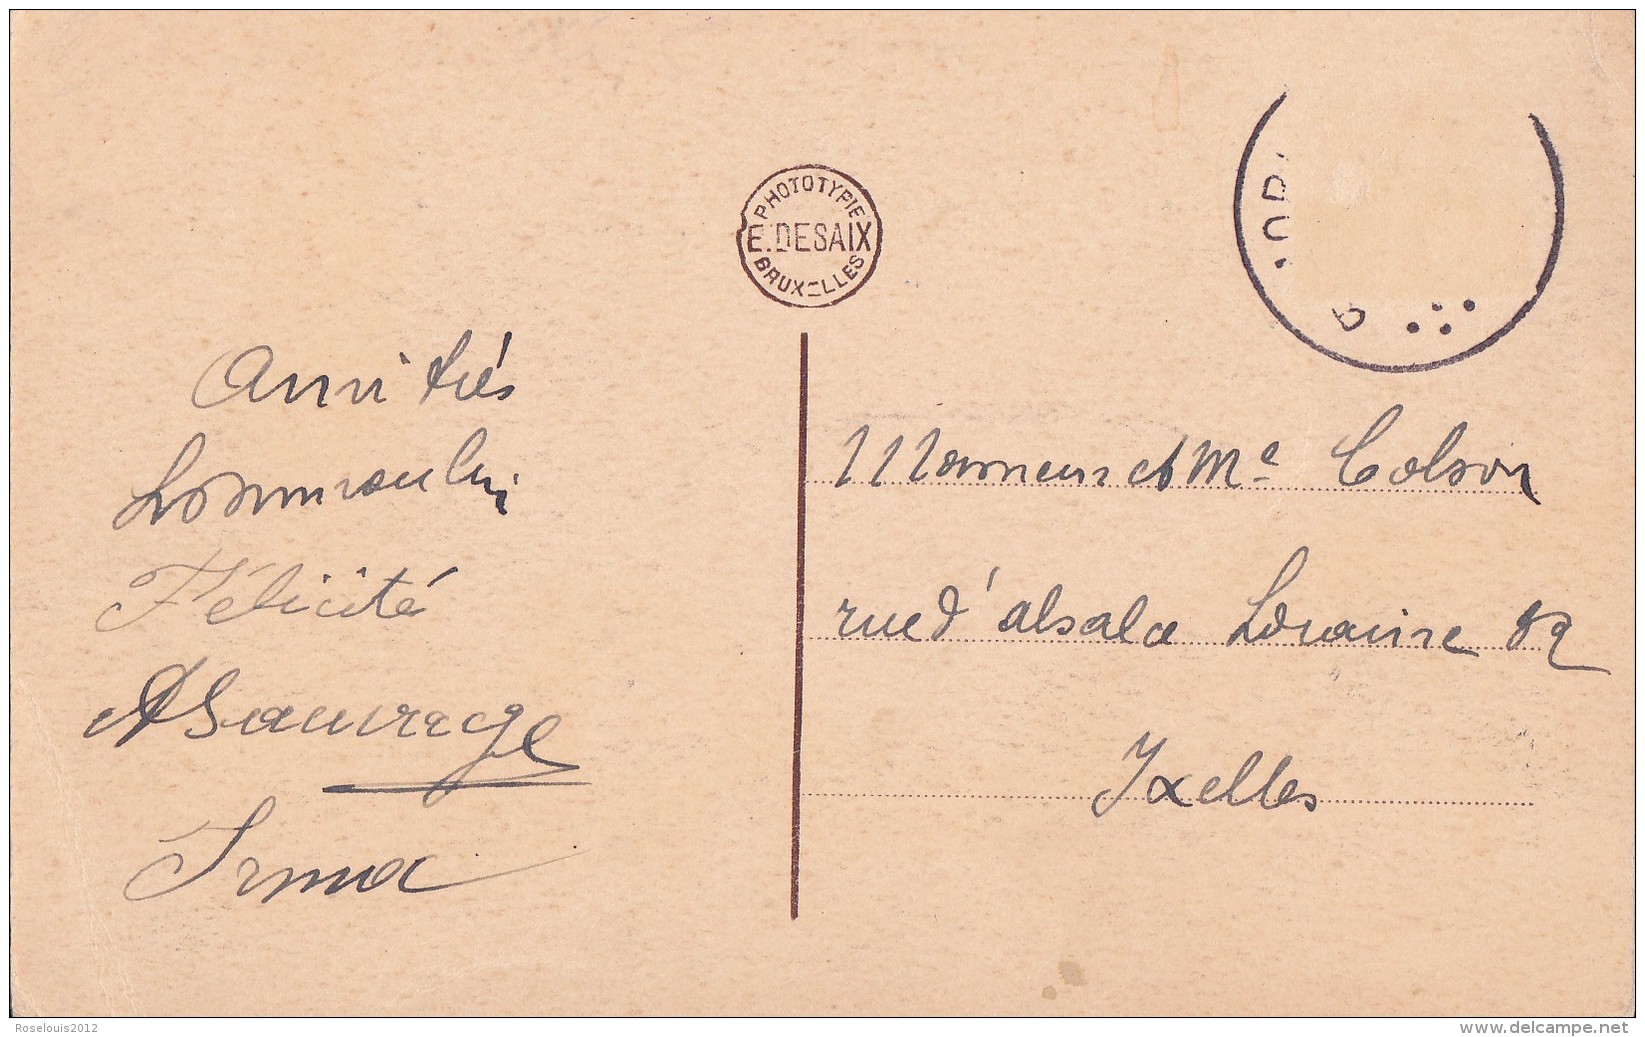 PHOTOTYPIE
E. DESAIX
BRUXELLES
Amitiés
Félicité
ASauvage
Irma
Monsieur et Me Colson
rue d'alsace Loraine
Ixelles
Roselouis2012
www.delcampe.net